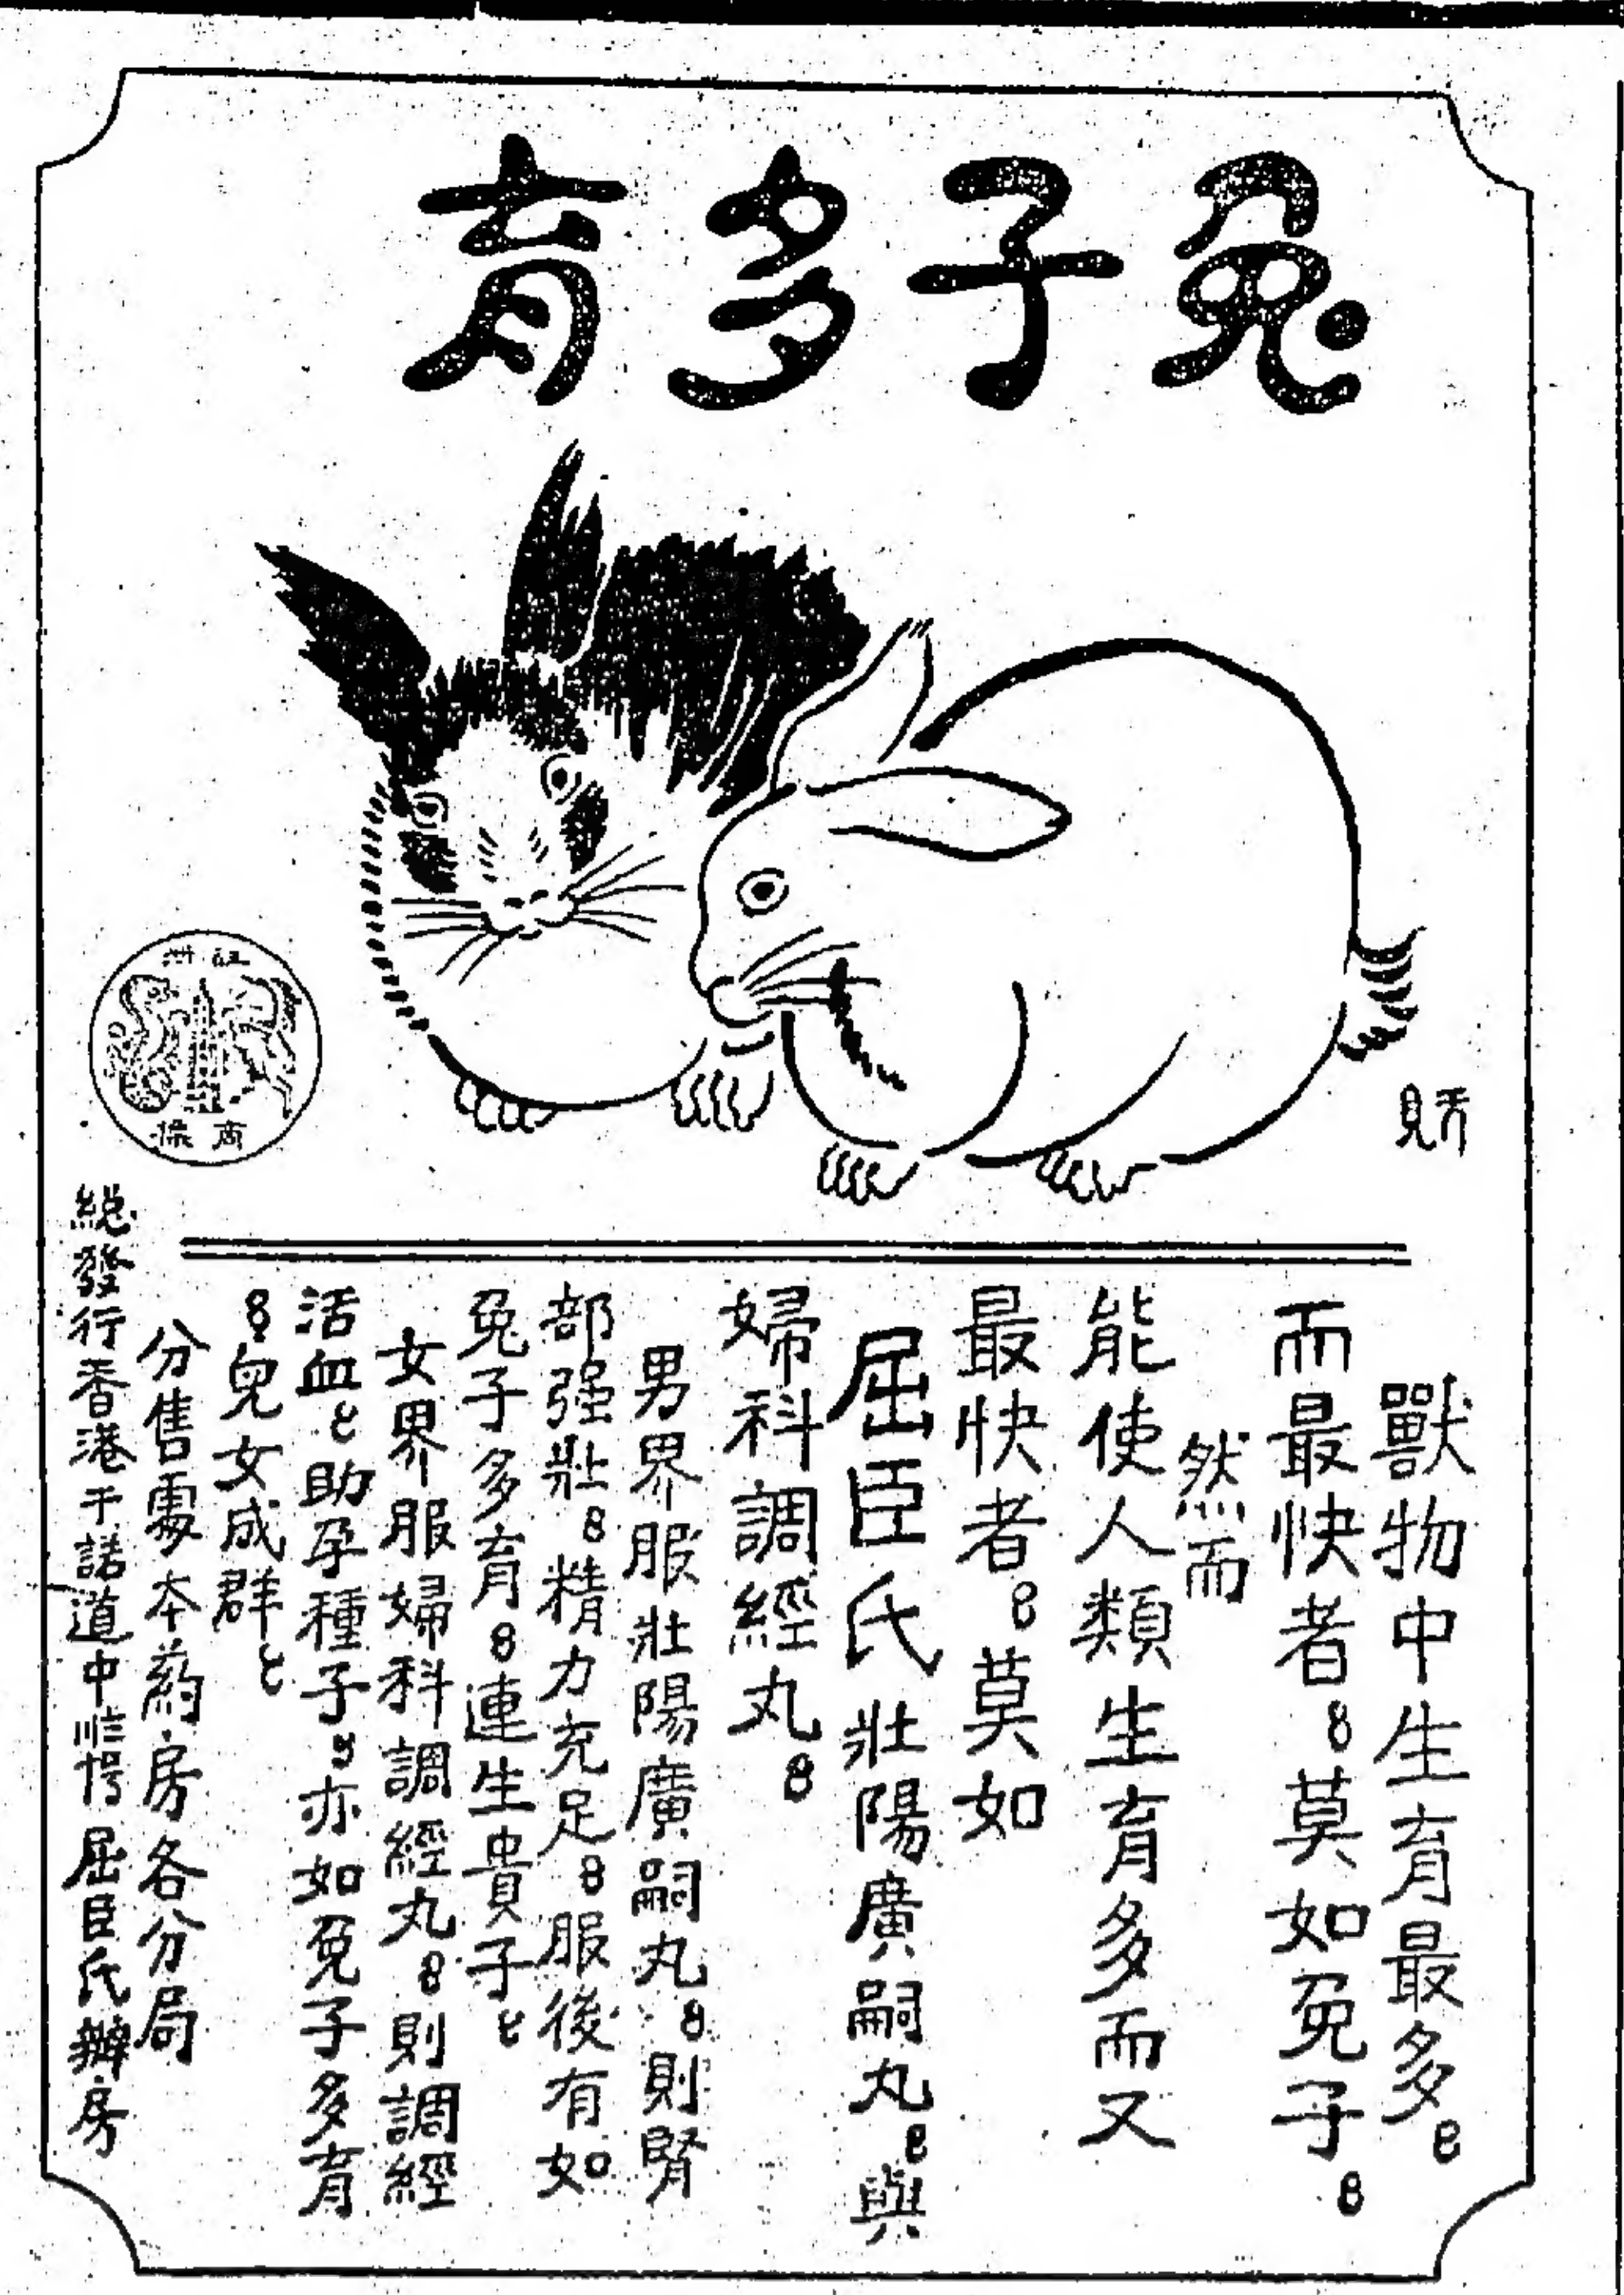 兔子多育
獸物中生育最多。
而最快者。莫如兔子。
然而
能使人類生育多而又
最快者。莫如
屈臣氏壯陽廣嗣丸。與
婦科調經丸。
男界服壯陽廣嗣丸。則腎
部强壯。精力充足。服後有如
兔子多育。連生貴子。
女界服婦科調經丸。則調經
活血。助孕種子。亦如兔子多育
。兒女成群。
分售處本葯房各分局
総發行香港干諾道中 屈臣氏辦房
商標